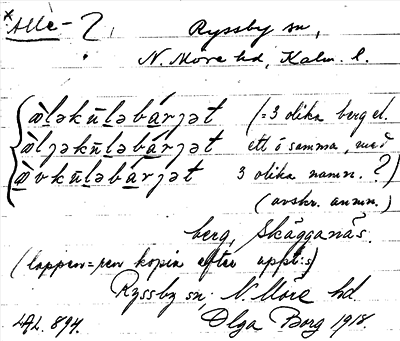 × Alle- ?, Ryssby sn,
N. Möre hd, Kalm. l.
æ̀ləkūləbárjət (= 3 olika berg el.
æ̀ljəkūləbárjət ett o samma, med
æ̀vkūləbárjət 3 olika namn. ?)
(avskr. anmn.)
berg, Skägganäs.
(lappen = ren kopia efter uppt:s)
Ryssby sn, N. Möre hd.
LAL. 894. Olga Borg 1918.